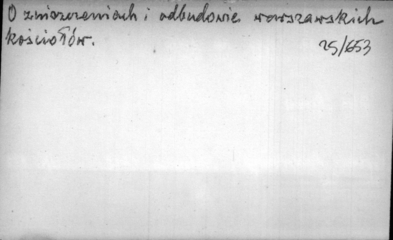 O zniszczeniach i odbudowie warszawskich
kościołów.
25/653